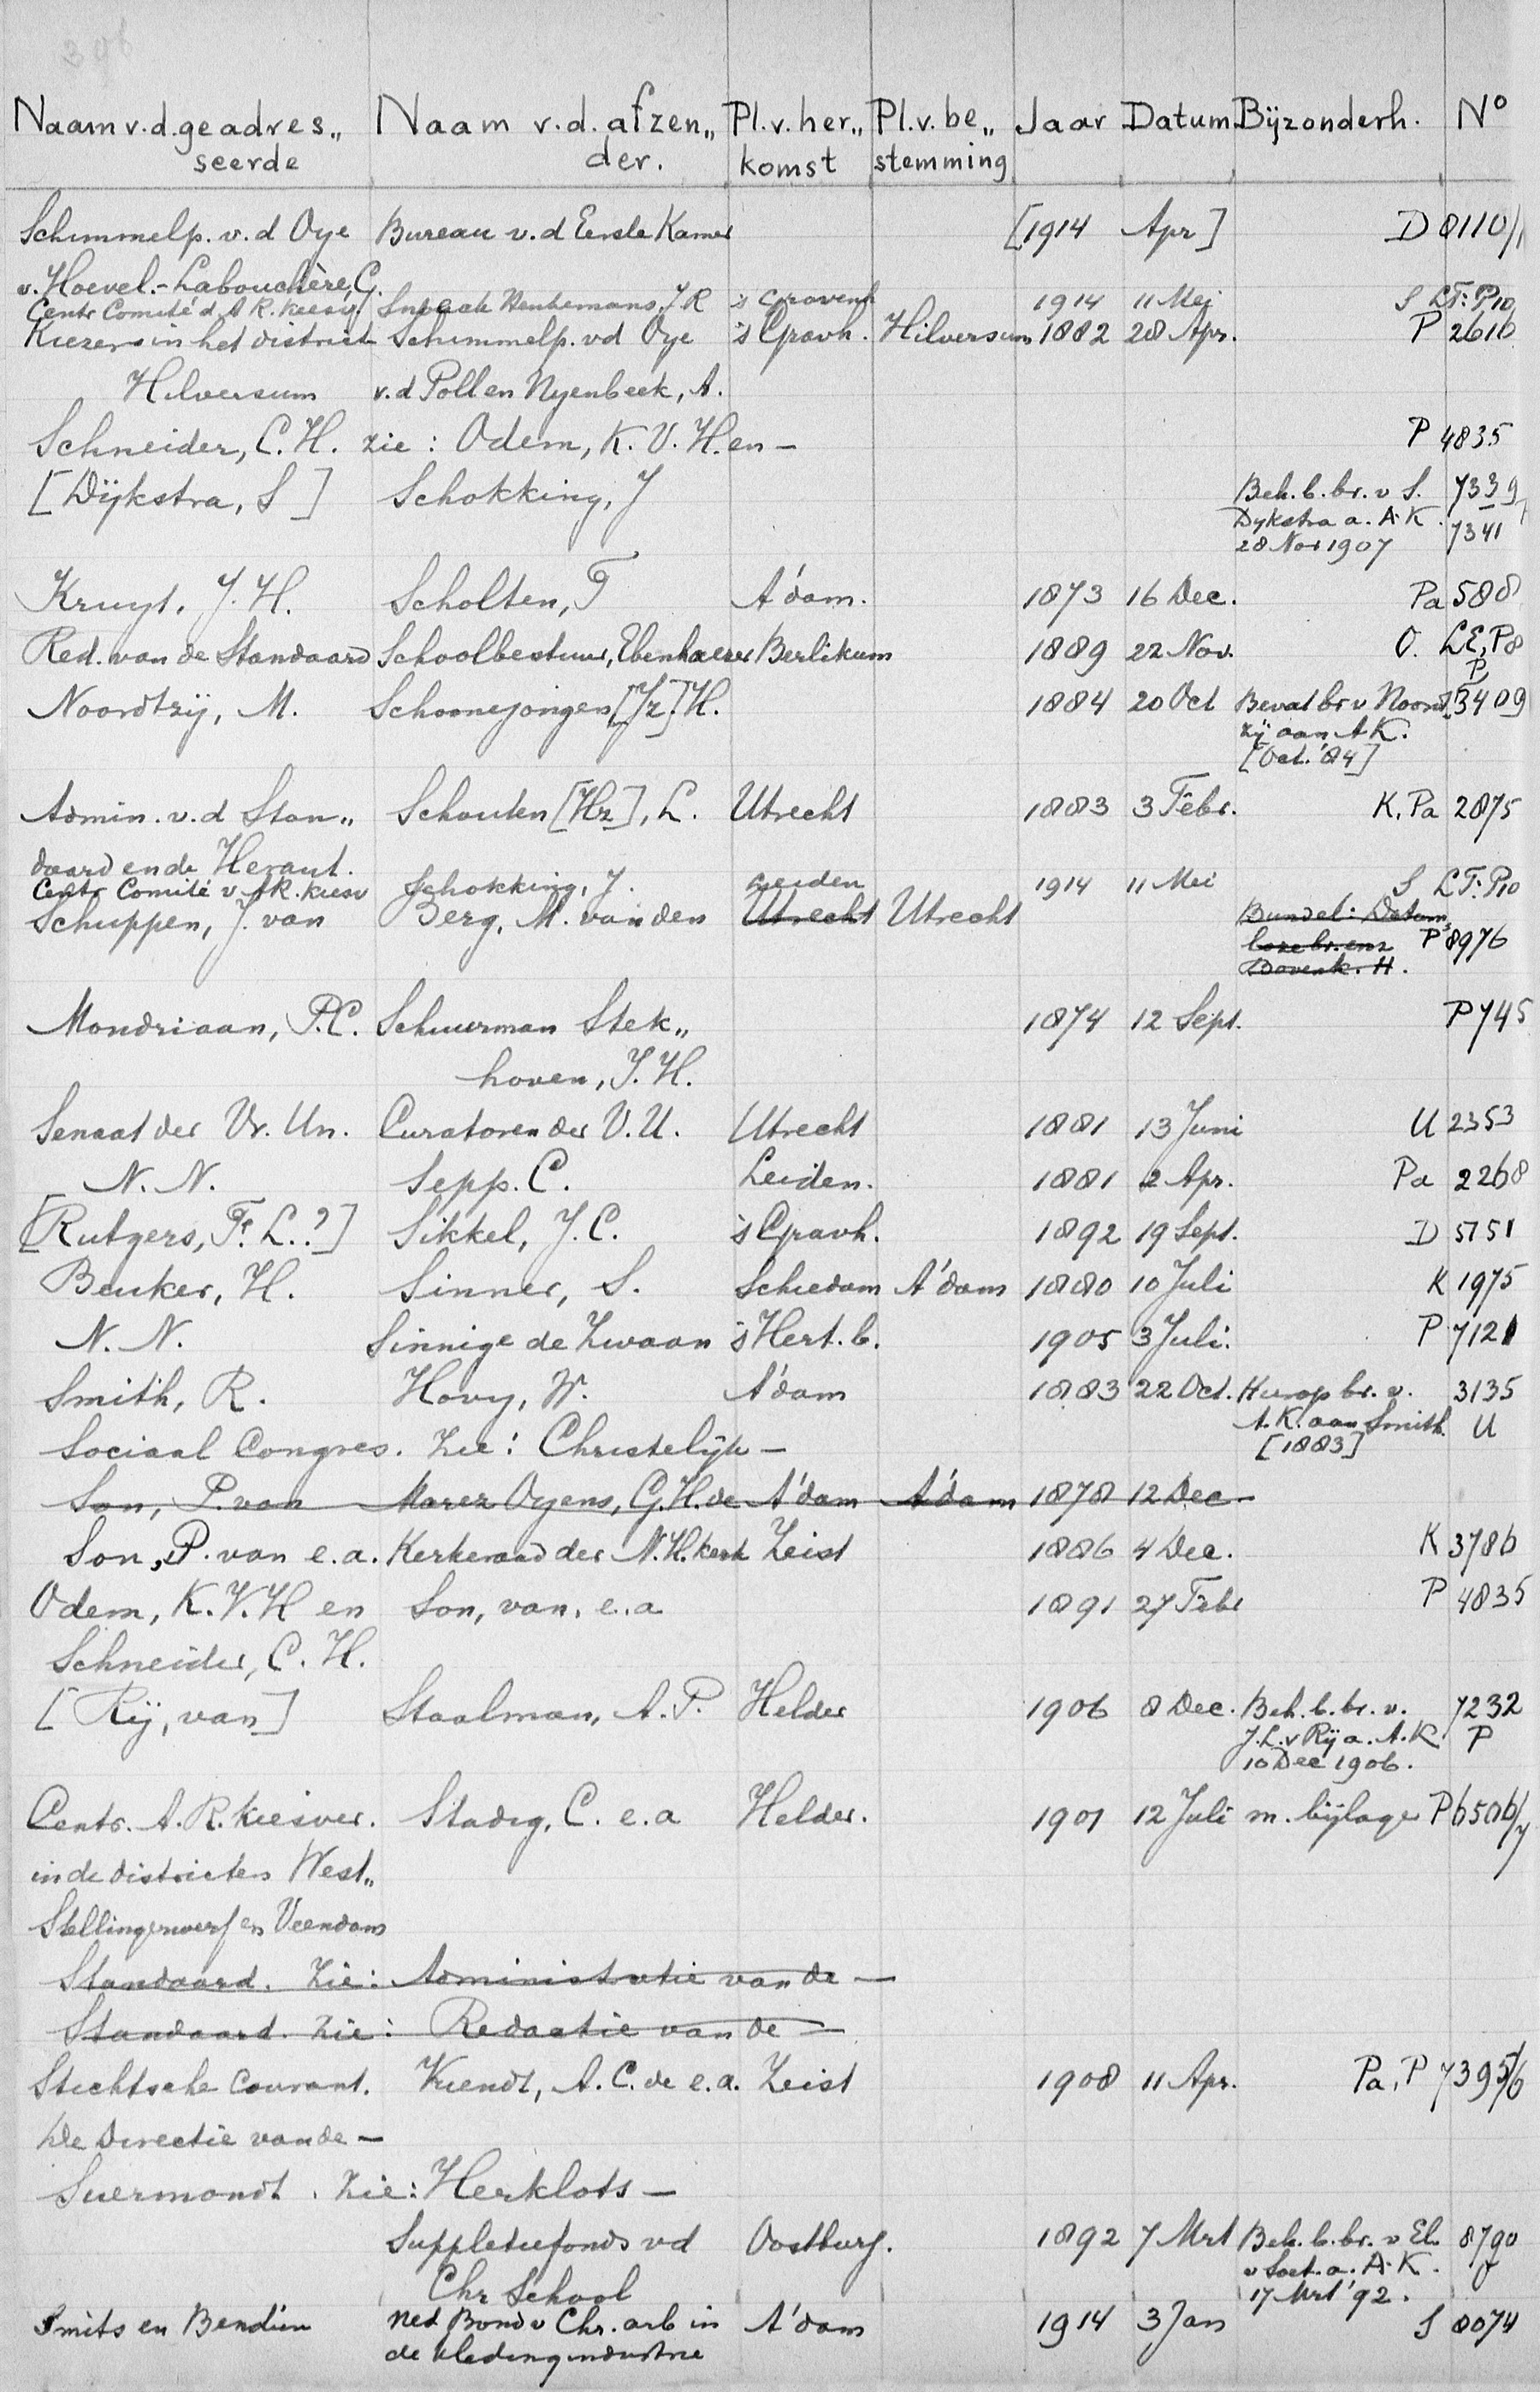 396
Naam v.d. geadres„ Naam v.d. afzen„ Pl. v. her„ Pl. v. be„ Jaar Datum Bijzonderh. No
seerde der. komst stemming
Schimmelp. v. d Oye Bureau v. d Eerste Kamer [1914 Apr] D 8110/1
v. Hoevel.-Labouchère, G.
Centr Comité d. A R. kiesv. Snoeck Henkemans, J R 's Gravenh 1914 11 Mei S LT: P10
Kiezers in het district Schimmelp. vd Oye 's Gravh. Hilversum 1882 28 Apr. P 2616
Hilversum v.d Poll en Nyenbeek, A.
Schneider, C. H. zie: Odem, K. V. H. en — P 4835
[Dijkstra, S] Schokking, J Beh. b. br. v S. 7339
Dykstra a. A. K. 7341
28 Nov 1907
Kruyt, J. H. Scholten, F A'dam. 1873 16 Dec. Pa 588
Red. van de Standaard Schoolbestuur, Ebenhaezer Berlikum 1889 22 Nov. O. LE, P8
P
Noordtzij, M. Schoonejongen [Jz]. H. 1884 20 Oct Bevat br v Noord„ 3409
zij aan A K.
[Oct. '84]
Admin. v. d Stan„ Schouten [Hz], L. Utrecht 1883 3 Febr. K, Pa 2875
daard en de Heraut.
Centr Comité v AR. kiesv Schokking, J. Leiden 1914 11 Mei S LT: P10
Schuppen, J. van Berg, M. van den Utrecht Utrecht Bundel: Datum
loze br. enz P 8976
Bovenk. H.
Mondriaan, P. C. Schuurman Stek„ 1874 12 Sept. P 745
hoven, J. H.
Senaat der Vr. Un. Curatoren der V. U. Utrecht 1881 13 Juni U 2353
N. N. Sepp. C. Leiden. 1881 2 Apr. Pa 2268
[Rutgers, F. L.?] Sikkel, J. C. 's Gravh. 1892 19 Sept. D 5151
Beuker, H. Sinner, S. Schiedam A'dam 1880 10 Juli K 1975
N. N. Sinnige de Zwaan 's Hert. b. 1905 3 Juli. P 7121
Smith, R. Hovy, W. A'dam 1883 22 Oct. Hierop br. v. 3135
A. K. aan Smith. U
[1883]
Sociaal Congres. Zie: Christelijk —
Son, P. van Marez Oyens, G. H. de A'dam A'dam 1878 12 Dec
Son, P. van e. a. Kerkeraad der N. H. kerk Zeist 1886 4 Dec. K 3786
Odem, K. V. H en Son, van, e. a 1891 27 Febr P 4835
Schneider, C. H.
[Rij, van] Staalman, A. P. Helder 1906 8 Dec. Beh. b. br. v. 7232
J. L. v Rij a. A. K. P
10 Dec 1906.
Centr. A. R. kiesver. Stadig, C. e. a Helder. 1901 12 Juli m. bijlage P 6506/7
in de districten West„
Stellingerwerf en Veendam
Standaard. Zie: Administratie van de —
Standaard. Zie: Redactie van de —
Stichtsche Courant. Kiendt, A. C. de e. a. Zeist 1908 11 Apr. Pa, P 7395/6
De Directie van de —
Suermondt. Zie: Herklots —
Suppletiefonds vd Oostburg. 1892 7 Mrt Beh. b. br. v El. 8790
Chr School v Soet. a. A. K.
17 Mrt '92.
Smits en Bendien Ned Bond v Chr. arb in A'dam 1914 3 Jan S 8074
de kledingindustrie